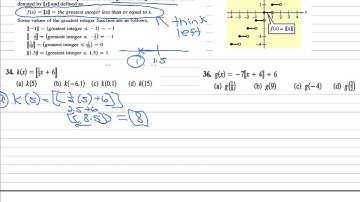 denoted by ⟦x⟧ and defined as
f(x) = ⟦x⟧ = the greatest integer less than or equal to x.
Some values of the greatest integer function are as follows.
⟦−1⟧ = (greatest integer ≤ −1) = −1
(greatest integer
(greatest integer
⟦1.5⟧ = (greatest integer ≤ 1.5) = 1
think
left
1 1.5
f(x) = ⟦x⟧
34. k(x) = ⟦½x + 6⟧
(a) k(5) (b) k(−6.1) (c) k(0.1) (d) k(15)
36. g(x) = −7⟦x + 4⟧ + 6
(a) g(1/8) (b) g(9) (c) g(−4) (d) g(
a) k(5) = ⟦½(5) + 6⟧
2.5 + 6
⟦8.5⟧ = 8